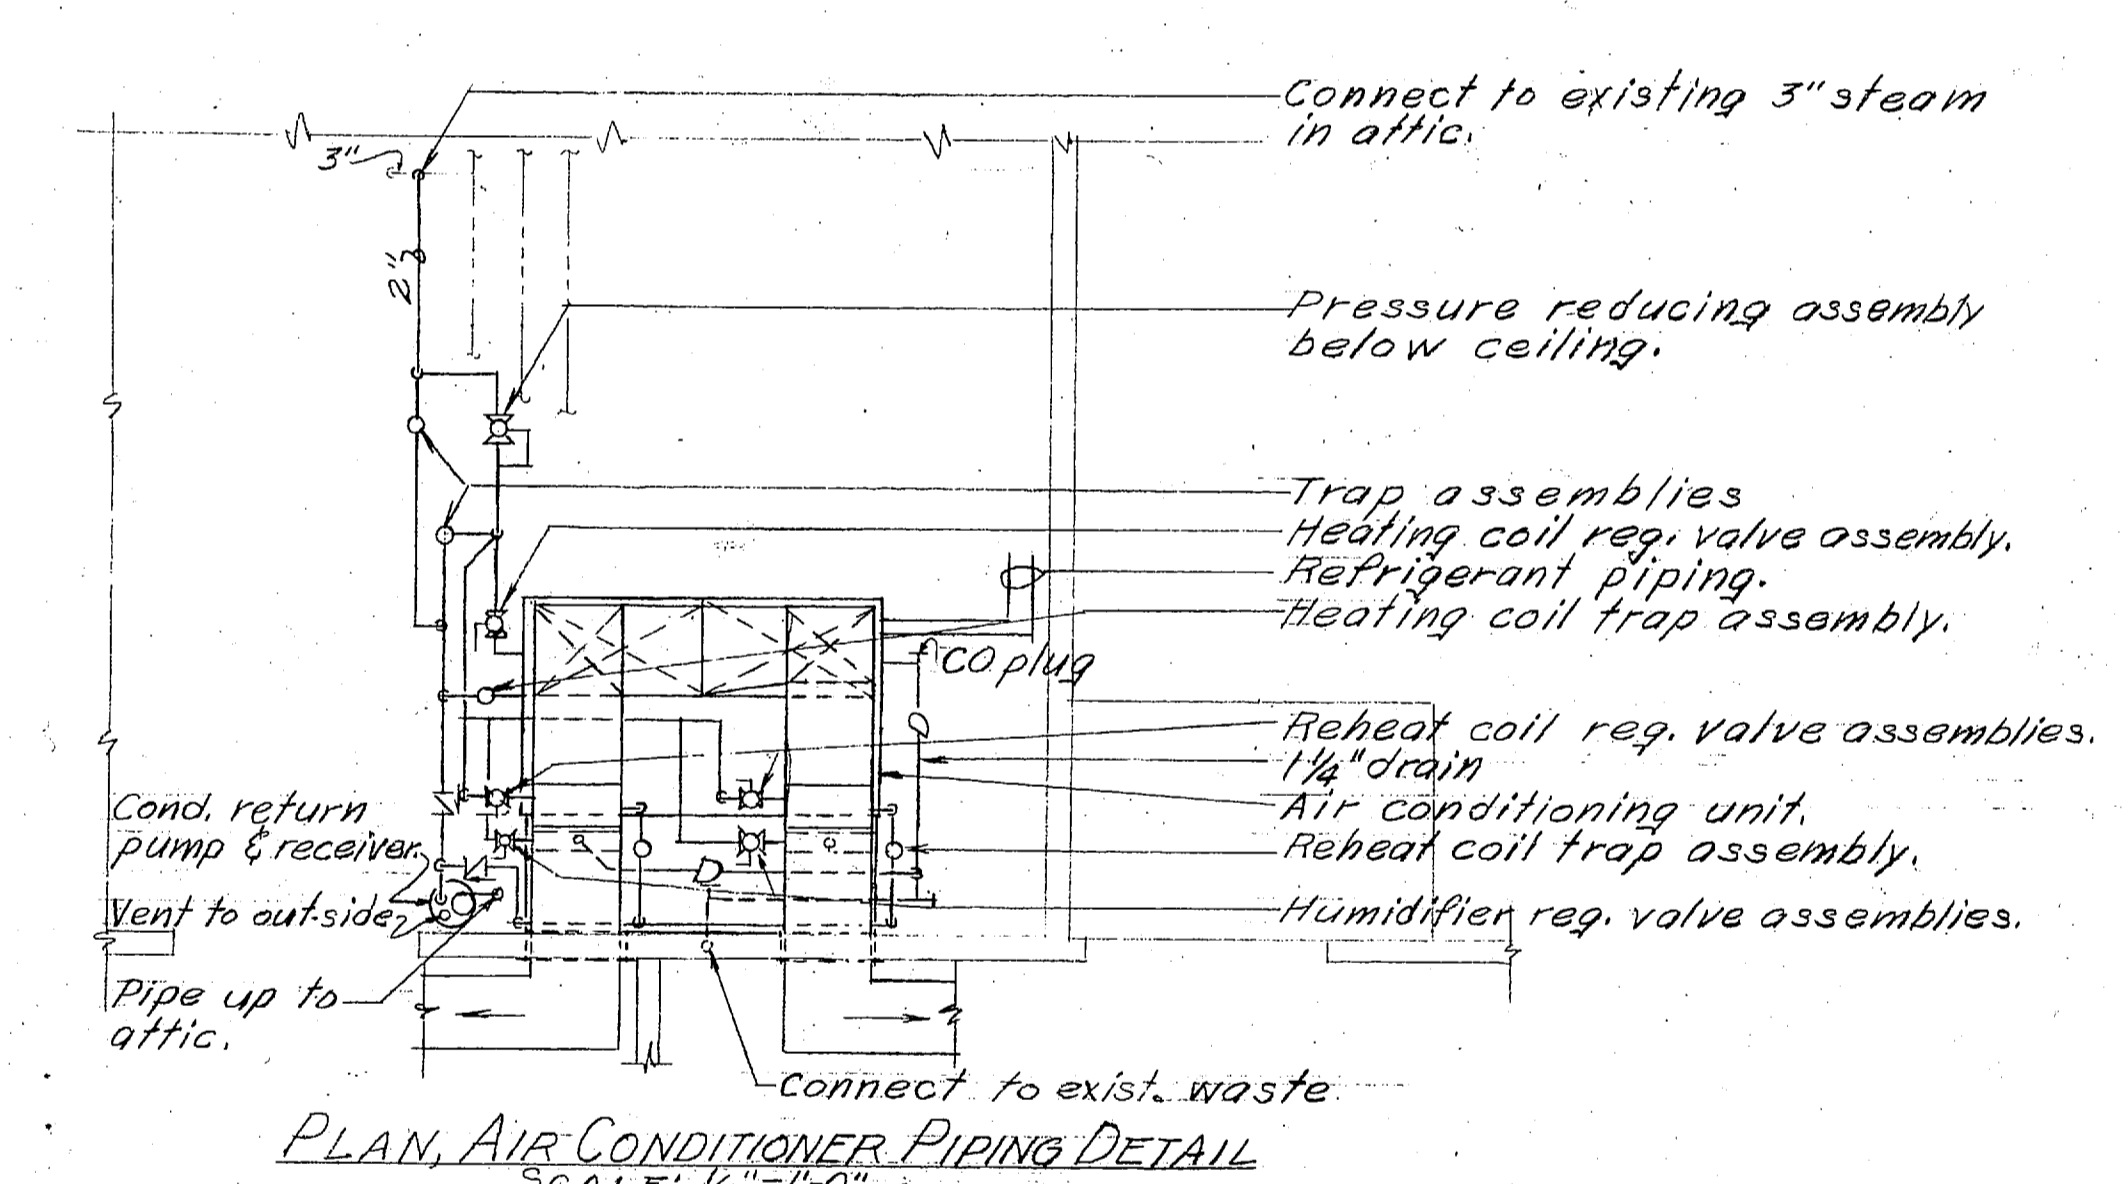 Connect to existing 3" steam
in attic.
3"
2"
Pressure reducing assembly
below ceiling.
Trap assemblies
Heating coil reg. valve assembly.
Refrigerant piping.
Heating coil trap assembly.
CO plug
Reheat coil reg. valve assemblies.
1 1/4" drain
Air conditioning unit.
Reheat coil trap assembly.
Humidifier reg. valve assemblies.
Cond. return
pump & receiver.
Vent to outside
Pipe up to
attic.
Connect to exist. waste
PLAN, AIR CONDITIONER PIPING DETAIL
SCALE: